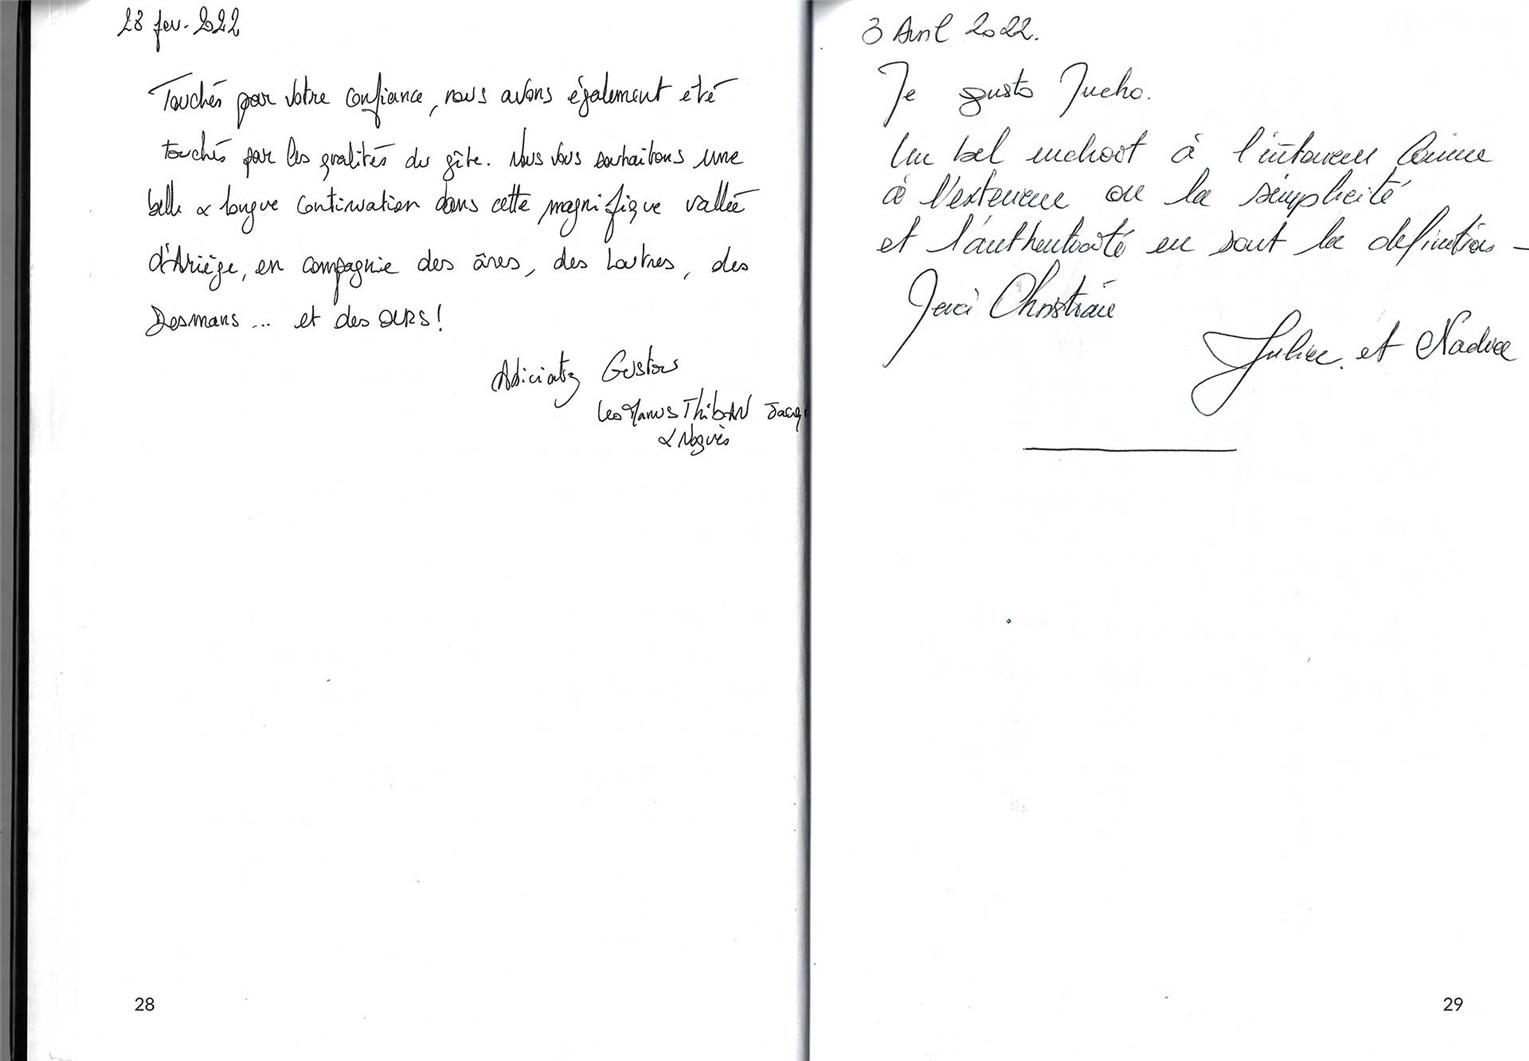 28 fev. 2022
Touchés par votre confiance, nous avons également été
touchés par les qualités du gîte. Nous vous souhaitons une
belle & longue continuation dans cette magnifique vallée
d'Ariège, en compagnie des ânes, des Loutres, des
Desmans ... et des OURS!
Adiciatz
Thibaut
&
28
3 Avril 2022.
Me gusto Mucho.
Un bel endroit à l'intérieur comme
à l'extérieur ou la simplicité
et l'authenticité en sont la définition -
Merci Christian
et Nadine
29